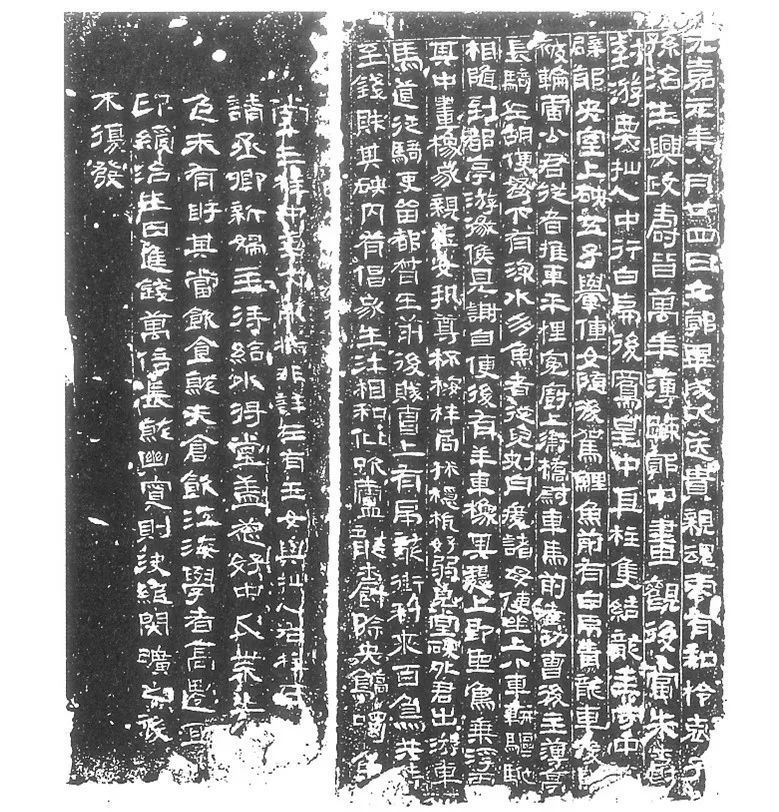 元嘉元年八月廿四日立郭畢成以送貴親魂零有知柃哀子
孫治生興政壽皆萬年薄踈郭中畫觀後當朱爵
對游戲仙人中行白虎後鳳皇中直柱隻結龍主守中
辟邪央室上硤五子轝僮女隨後駕鯉魚前有白虎青龍車後即
被輪雷公君從者推車平理冤厨上衛橋尉車馬前者功曹後主簿亭
長騎佐胡使弩下有流水多魚者從兒刺舟渡諸母使坐上小車軿驅馳
相隨到都亭游徼候見謝自便後有羊車橡其槥上即聖鳥乘浮雲
其中畫橡家親玉女執尊杯桉柈局束穩杭好弱貌堂硤外君出游車
馬道從騎吏留都督在前後賊曹上有虎龍銜利來百鳥共侍
至錢財其硤內有倡家生汙相和仳吹廬龍爵除央鶴噣魚
堂三柱中龍非詳左有玉女與仙人右柱
請丞卿新婦主侍給水將堂蓋葱好中瓜葉上
包末有盱其當飲食就夫倉飲江海學者高遷宜
印綬治生日進錢萬倍長就幽冥則決絕閉曠之後
不復發